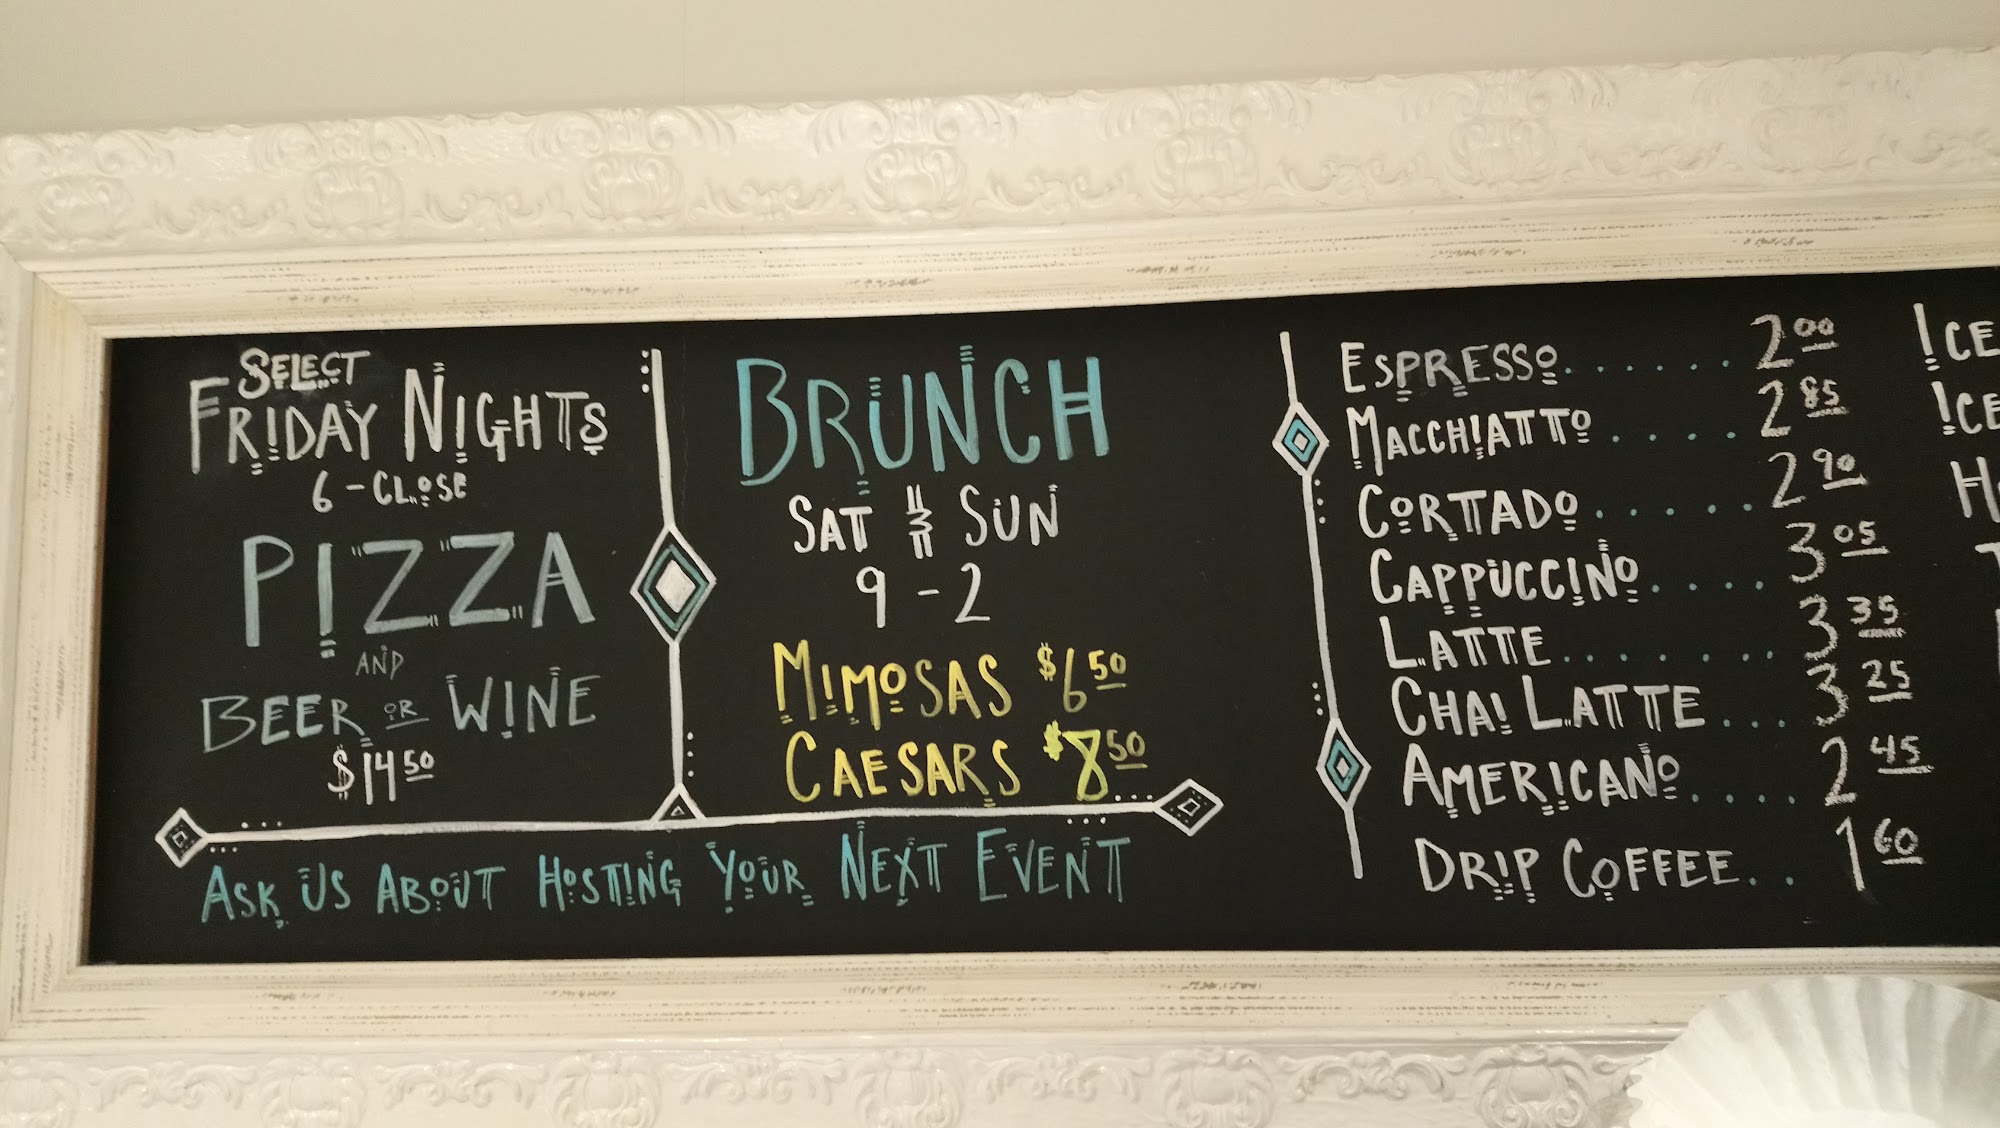 SELECT
FRIDAY NIGHTS
6 - CLOSE
PIZZA
AND
BEER OR WINE
$14.50
BRUNCH
SAT & SUN
9 - 2
MIMOSAS $6.50
CAESARS $8.50
ASK US ABOUT HOSTING YOUR NEXT EVENT
ESPRESSO....... 2.00
MACCHIATTO.... 2.85
CORTTADO...... 2.90
CAPPUCCINO.... 3.05
LATTE....... 3.35
CHAI LATTE... 3.25
AMERICANO.... 2.45
DRIP COFFEE.. 1.60
ICE
ICE